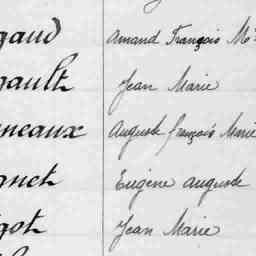 gaud Amand François M
gault Jean Marie
neaux Auguste François Marie
gnet Eugène Auguste
got Jean Marie